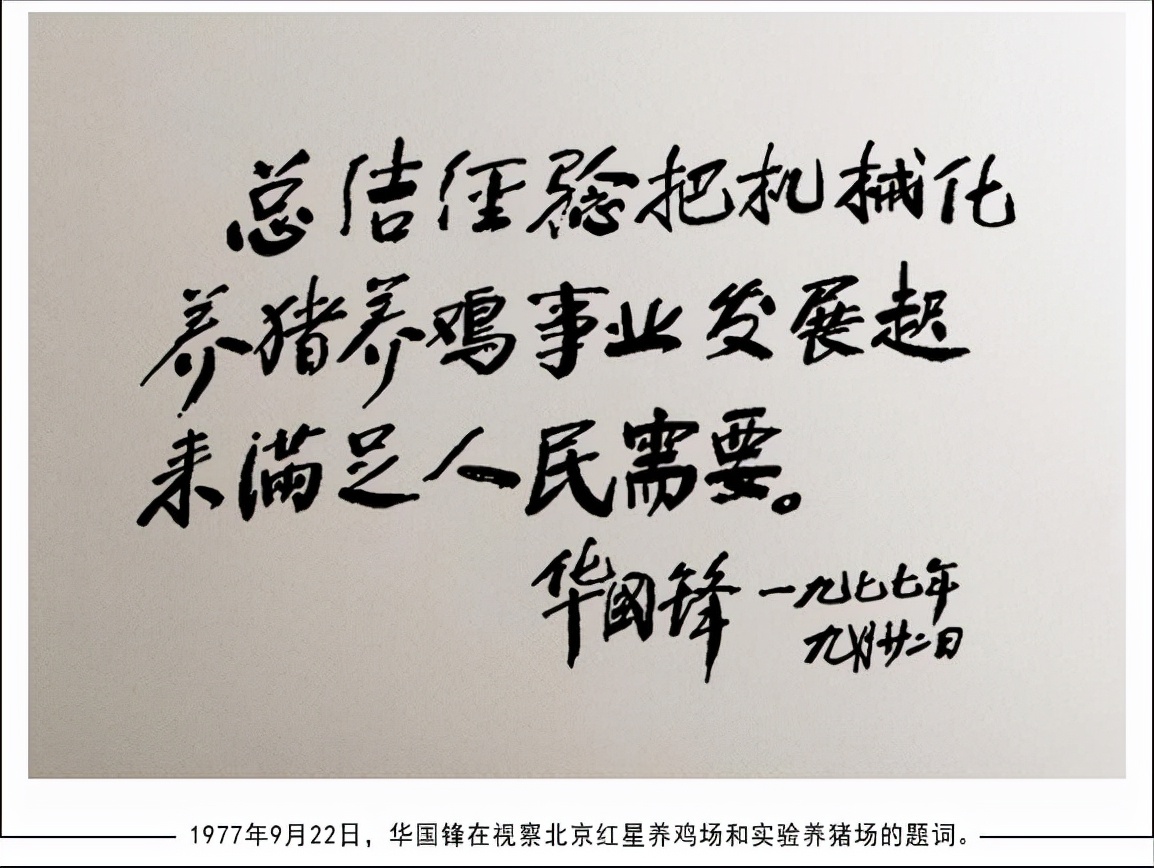 总结经验把机械化
养猪养鸡事业发展起
来满足人民需要。
华国锋 一九七七年
九月廿二日
1977年9月22日，华国锋在视察北京红星养鸡场和实验养猪场的题词。